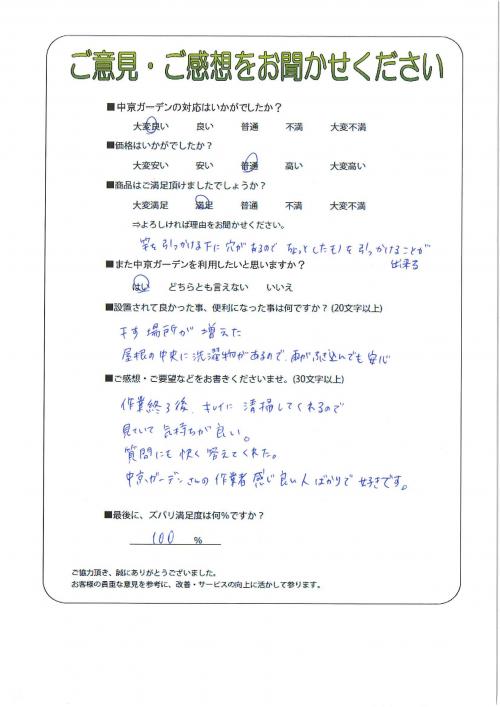 ご意見・ご感想をお聞かせください
■中京ガーデンの対応はいかがでしたか？
大変良い 良い 普通 不満 大変不満
■価格はいかがでしたか？
大変安い 安い 普通 高い 大変高い
■商品はご満足頂けましたでしょうか？
大変満足 満足 普通 不満 大変不満
⇒よろしければ理由をお聞かせください。
竿を引っかける下に穴があるので ちょっとしたモノを引っかけることが
出来る
■また中京ガーデンを利用したいと思いますか？
はい どちらとも言えない いいえ
■設置されて良かった事、便利になった事は何ですか？(20文字以上)
干す場所が増えた
屋根の中央に洗濯物があるので、雨がふき込んでも安心
■ご感想・ご要望などをお書きくださいませ。(30文字以上)
作業終了後、キレイに清掃してくれるので
見ていて気持ちが良い。
質問にも快く答えてくれた。
中京ガーデンさんの作業者 感じ良い人ばかりで好きです。
■最後に、ズバリ満足度は何％ですか？
100 %
ご協力頂き、誠にありがとうございました。
お客様の貴重な意見を参考に、改善・サービスの向上に活かして参ります。